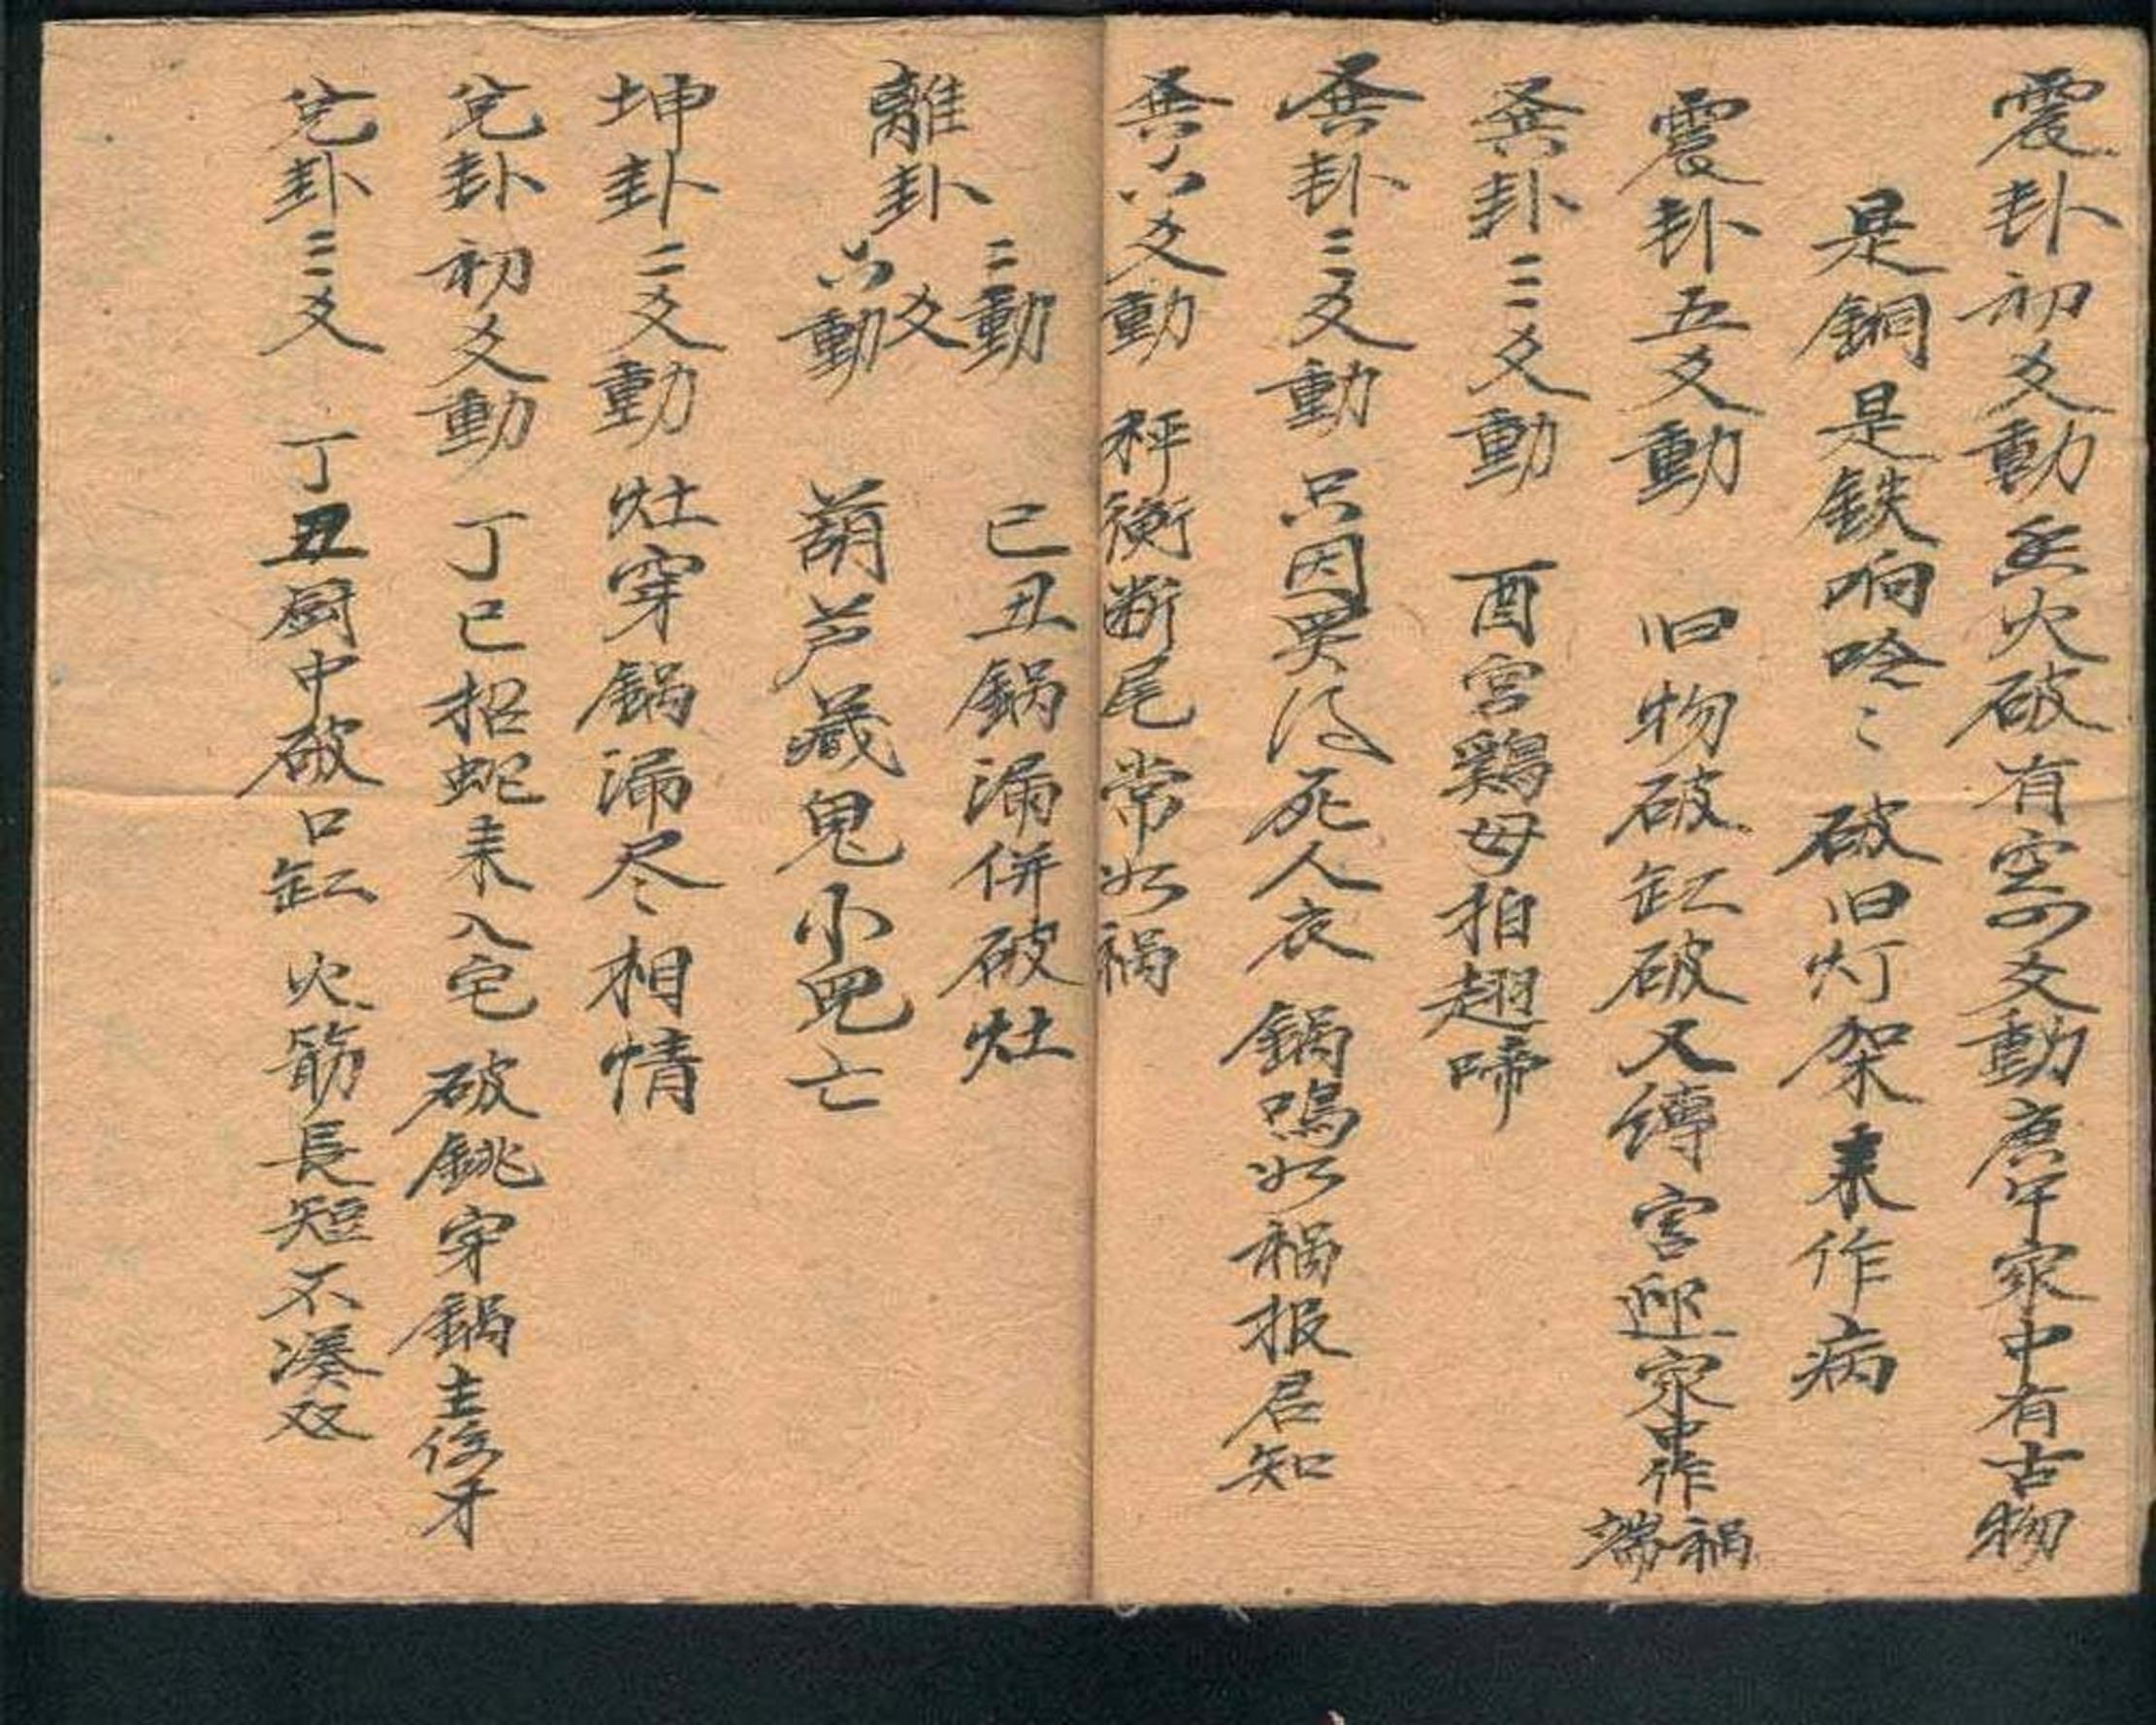 震卦初爻動 火破有空 四爻動庚午家中有古物
是銅是鉄响唥〻 破旧灯架来作病
震卦五爻動 旧物破缸破又縛 宫迎家中作禍端
巽卦三爻動 酉宫鷄母拍翅啼
巽卦三爻動 只因男没死人衣 鍋鳴必禍报君知
巽六爻動 秤衡断尾常必禍
離卦 三動 爻 己丑鍋漏併破灶
六動 葫芦藏鬼小児亡
坤卦二爻動 灶穿鍋漏尽相情
兌卦初爻動 丁巳招蛇来入宅 破銚穿鍋主牙
兌卦三爻 丁丑厨中破口缸 火筋長短不湊双